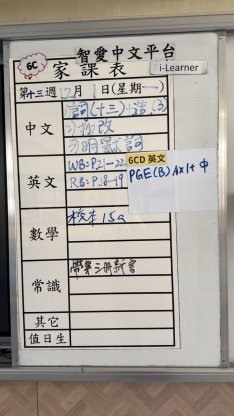 6C
智愛中文平台
家課表
i-Learner
第十三週12月1日(星期一)
中文
1)詞(十三)+造(3)
2)抄改
3)明默詞
英文
WB: P.21-22
RB: P.18-19
6CD 英文
PGE(B) Ax1+中
數學
校本15a
常識
帶第三冊新書
其它
值日生